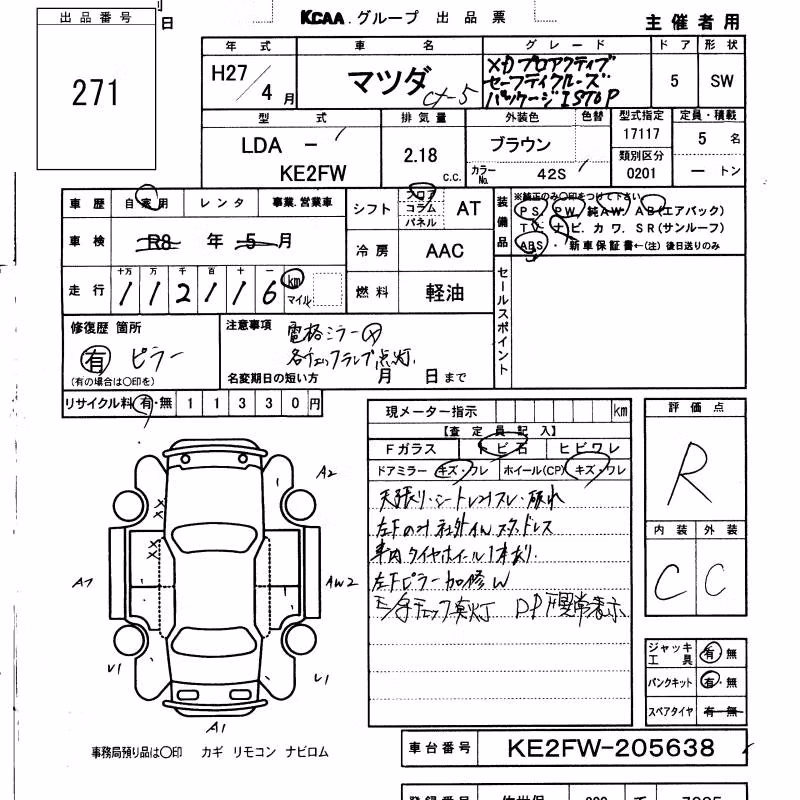 出品番号
271
日
KCAA グループ 出品票
主催者用
年式 車名 グレード ドア 形状
H27/4月 マツダ CX-5 XDプロアクティブ
セーフティクルーズ
パッケージ ISTOP
5 SW
型式 排気量 外装色 色替 型式指定 定員・積載
LDA -
KE2FW
2.18 c.c.
ブラウン
カラーNo. 42S
17117
類別区分
0201
5名
ー トン
車歴 自家用 レンタ 事業.営業車
車検 R8年5月
走行 十万 万 千 百 十 一
1 1 2 1 1 6 km マイル
シフト フロア コラム パネル AT
冷房 AAC
燃料 軽油
装備品
※純正のみ〇印をつけて下さい
PS. PW. 純AW. AB(エアバック)
TV. ナビ. カワ. SR(サンルーフ)
ABS・ 新車保証書←(注) 後日送りのみ
セールスポイント
修復歴 箇所
有 ピラー
(有の場合は〇印を)
注意事項
電格ミラー
各チェックランプ点灯.
名変期日の短い方 月 日まで
リサイクル料 有・無 11330円
現メーター指示 km
【査定員記入】
Fガラス トビ石 ヒビワレ
ドアミラー キズ・ワレ ホイール(CP) キズ・ワレ
天張り・シート
左F 社外
車内タイヤホイール1本あり.
左Fピラー加修W
DPF異常表示
評価点
R
内装 外装
C C
A2
A7
AW2
V1
V1
A1
XX
XX
ジャッキ工具 有・無
パンクキット 有・無
スペアタイヤ 有・無
事務局預り品は〇印 カギ リモコン ナビロム
車台番号 KE2FW-205638